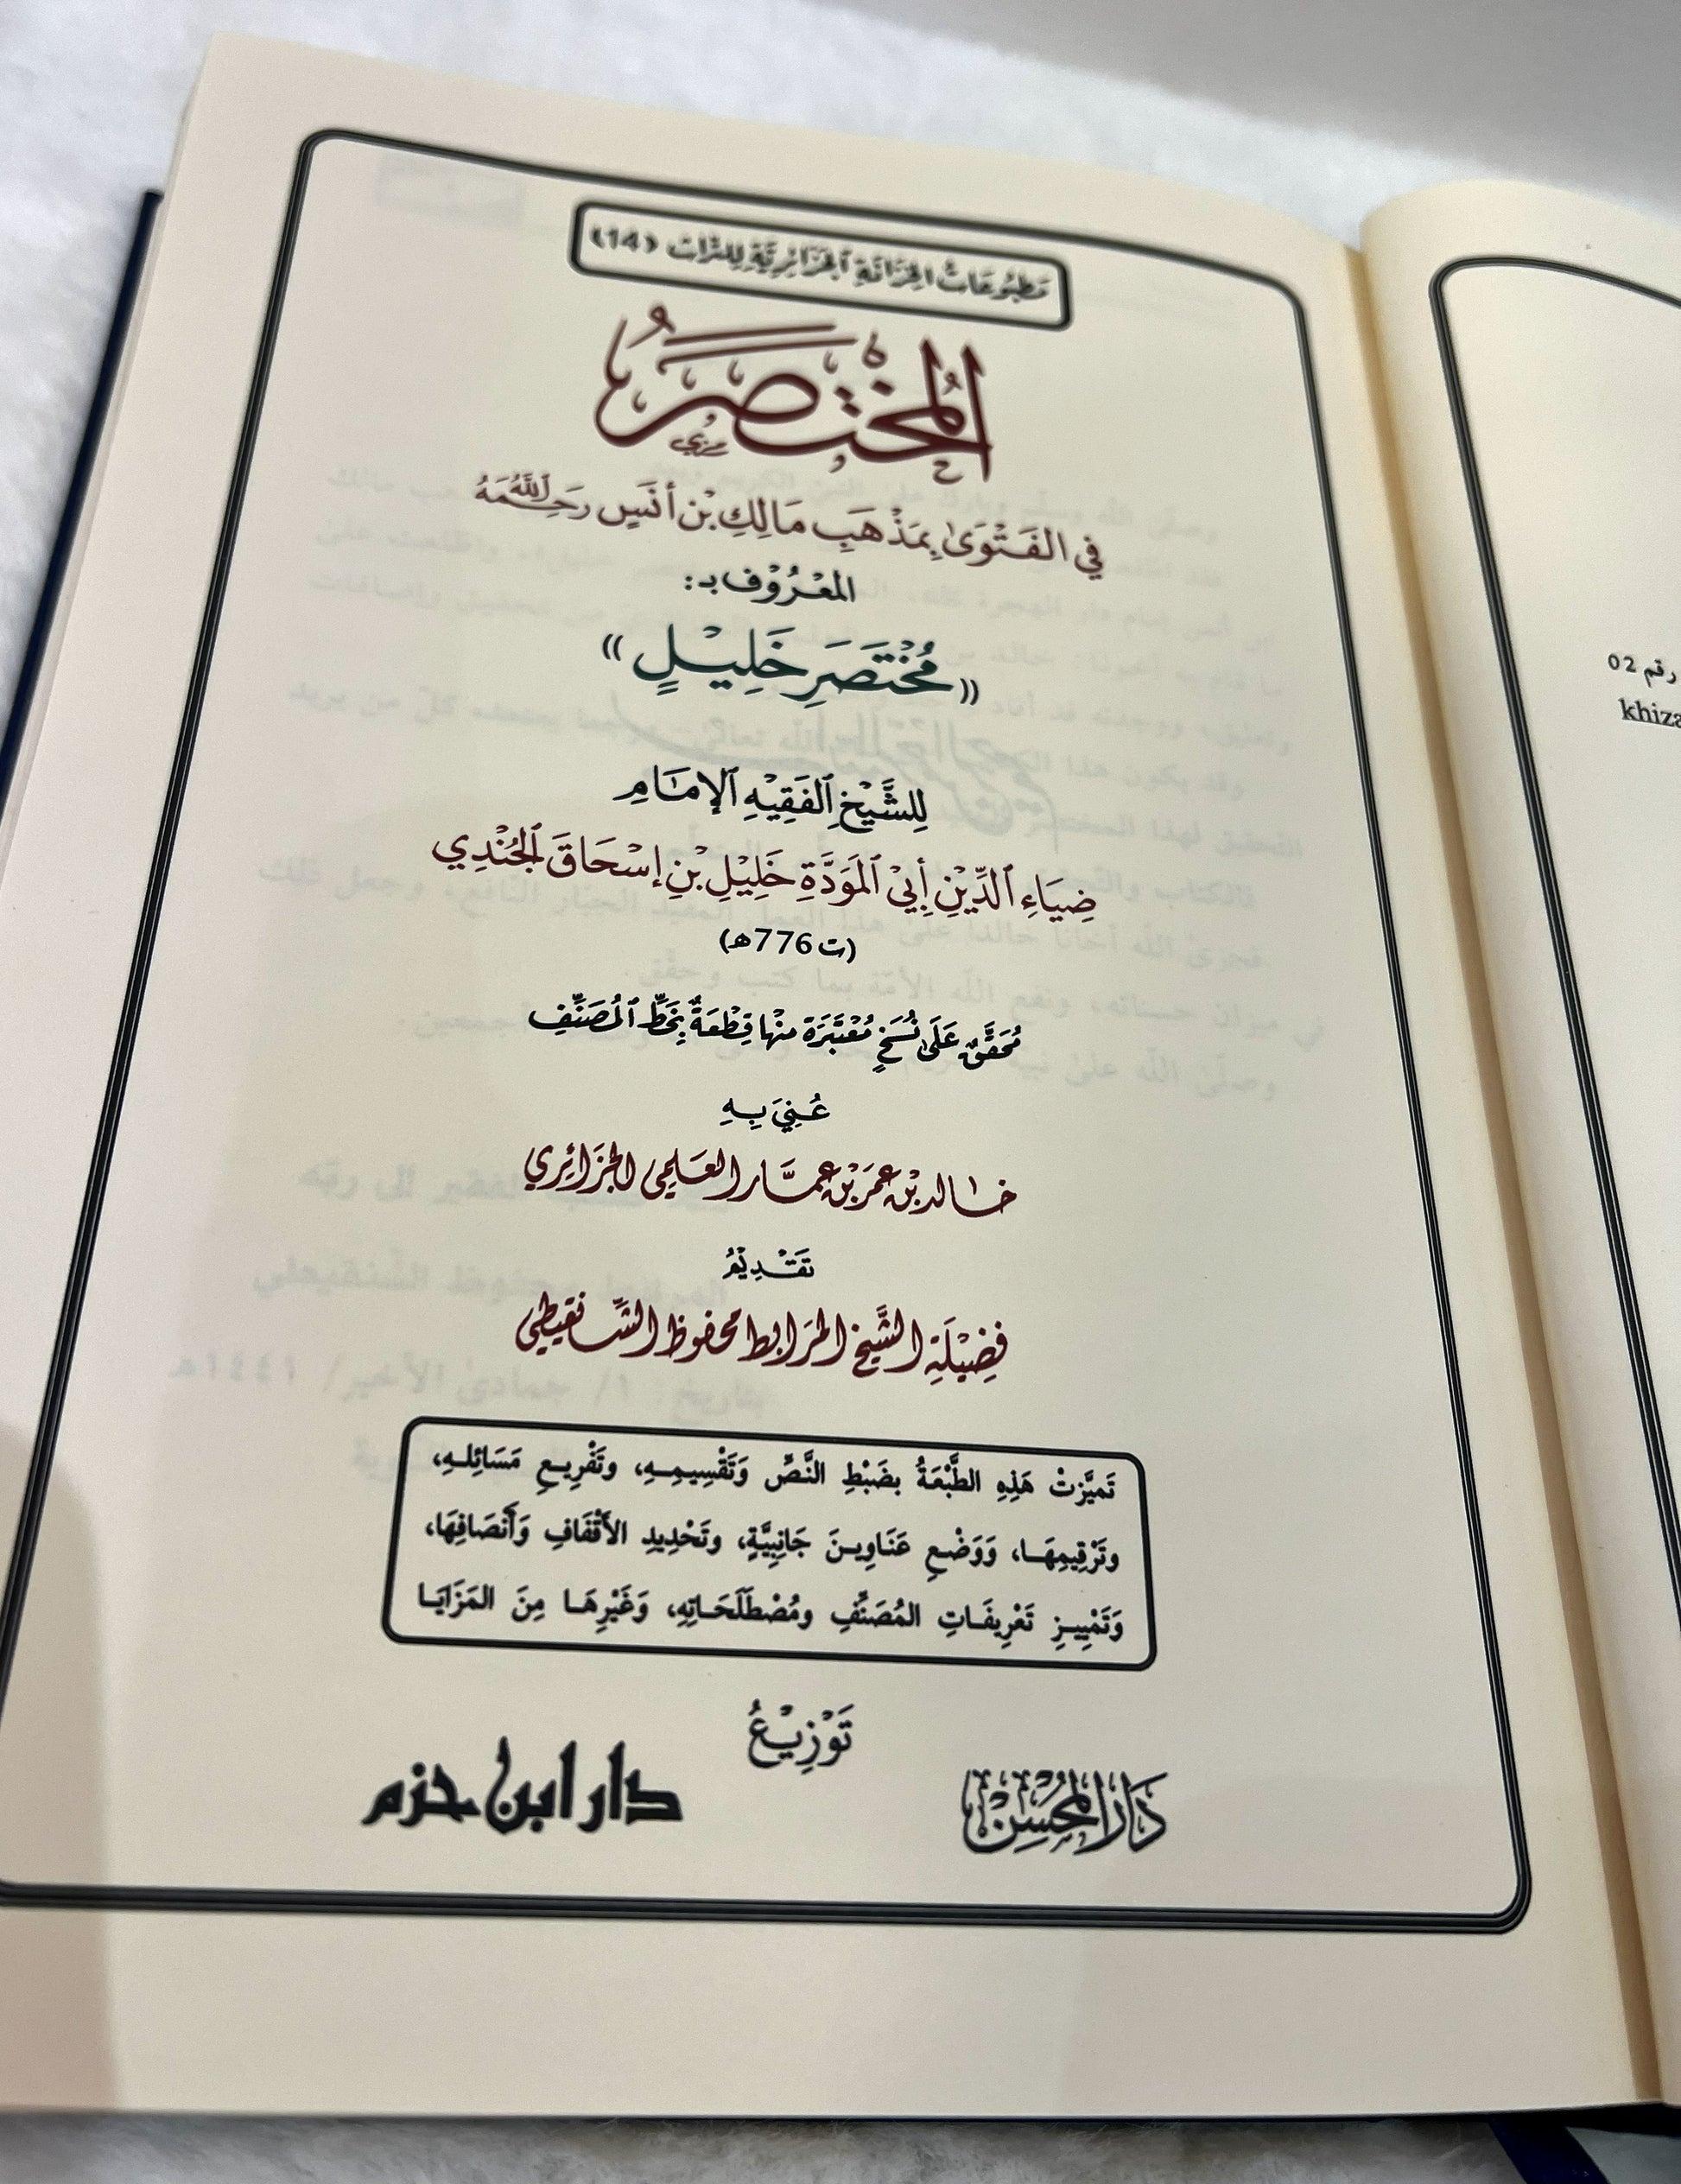 مَطْبُوعَاتُ الخِزَانَةِ الجَزَائِرِيَّةِ لِلتُّرَاث (14)
المُخْتَصَرُ
في الفَتْوَىٰ بِمَذْهَبِ مَالِكِ بْنِ أَنَسٍ رَحِمَهُ اللَّهُ
المَعْرُوْف بـ:
«مُخْتَصَرِ خَلِيْلٍ»
لِلشَّيْخِ الفَقِيْهِ الإمَامِ
ضِيَاءِ الدِّيْنِ أَبِيْ المَوَدَّةِ خَلِيْلِ بْنِ إسْحَاقَ الجُنْدِي
(ت 776هـ)
مُحَقَّقٌ عَلَىٰ نُسَخٍ مُعْتَبَرَةٍ منْهَا قِطْعَةٌ بِخَطِّ المُصَنِّفِ
عُنِيَ بِهِ
خَالد بْن عُمَرَ بْن عمَّار العَلَمِي الجَزَائِرِي
تَقْدِيْمُ
فَضِيْلَةِ الشَّيْخ المُرَابِط مَحْفُوظ الشَّنقِيطِي
تَميَّزتْ هَذِهِ الطَّبْعَةُ بضَبْطِ النَّصِّ وَتَقْسِيمِـهِ، وتَفْرِيـعِ مَسَائِلـهِ،
وتَرْقِيمِهَـا، وَوَضْـعِ عَنَاوِيـنَ جَانِبِيَّةٍ، وتَحْدِيدِ الأَقْفَافِ وَأَنْصَافِهَا،
وَتَمْيِيـزِ تَعْرِيفَـاتِ المُصَنِّفِ ومُصْطَلَحَـاتِهِ، وَغَيْرِهَـا مِنَ المَزَايَـا
تَوْزِيْعُ
دَارُ المُحْسِنْ
دار ابن حزم
رقم 02
khiza